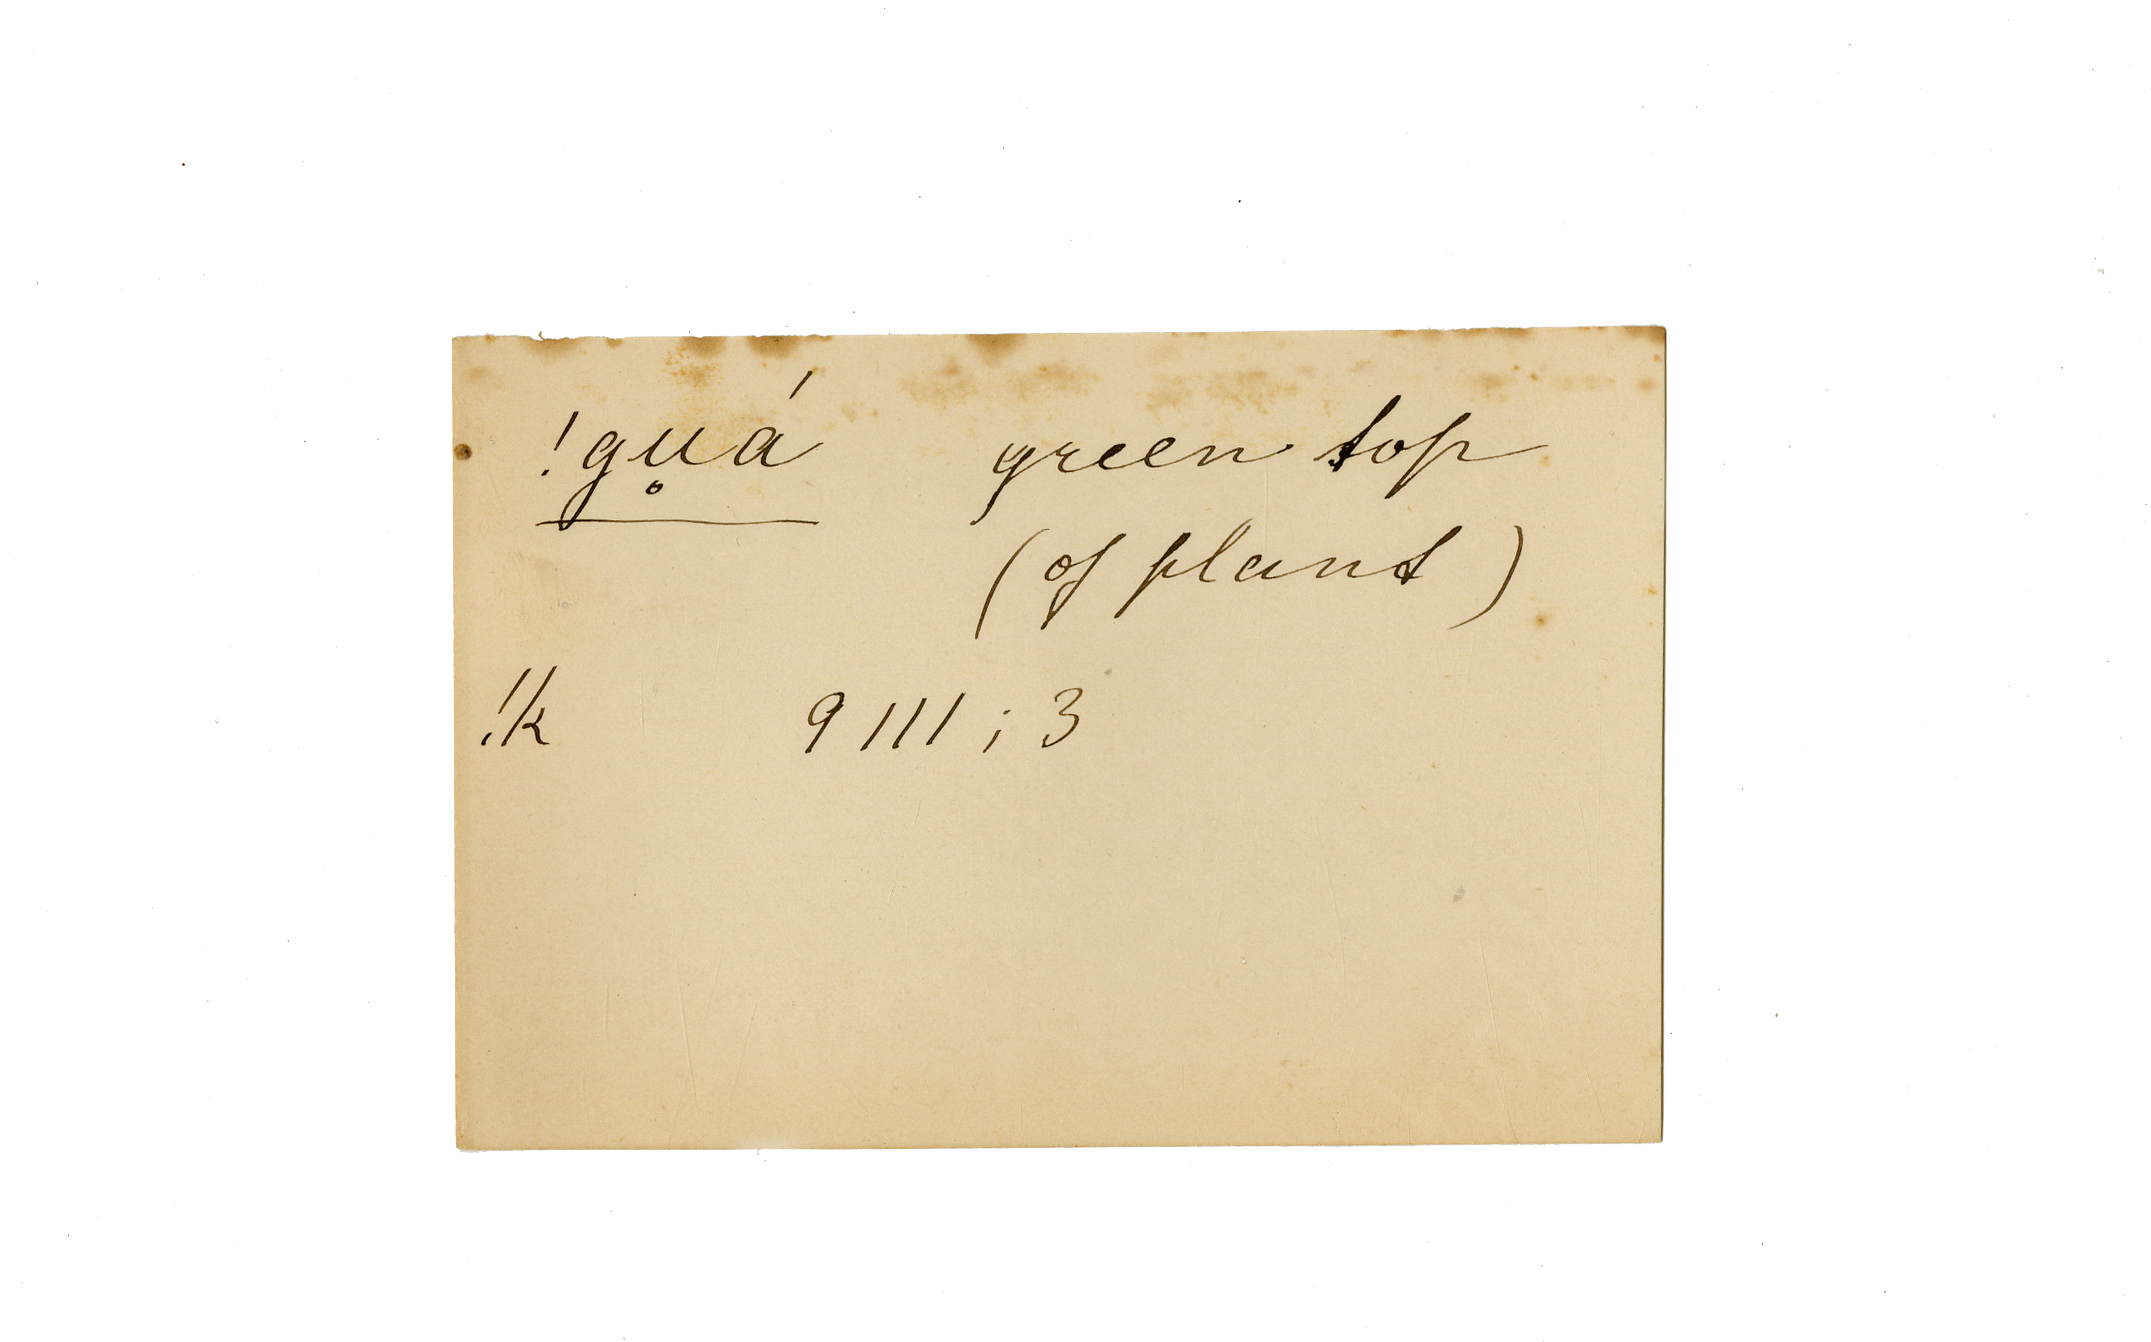 !gu̥á green top
(of plant)
!k 9111; 3